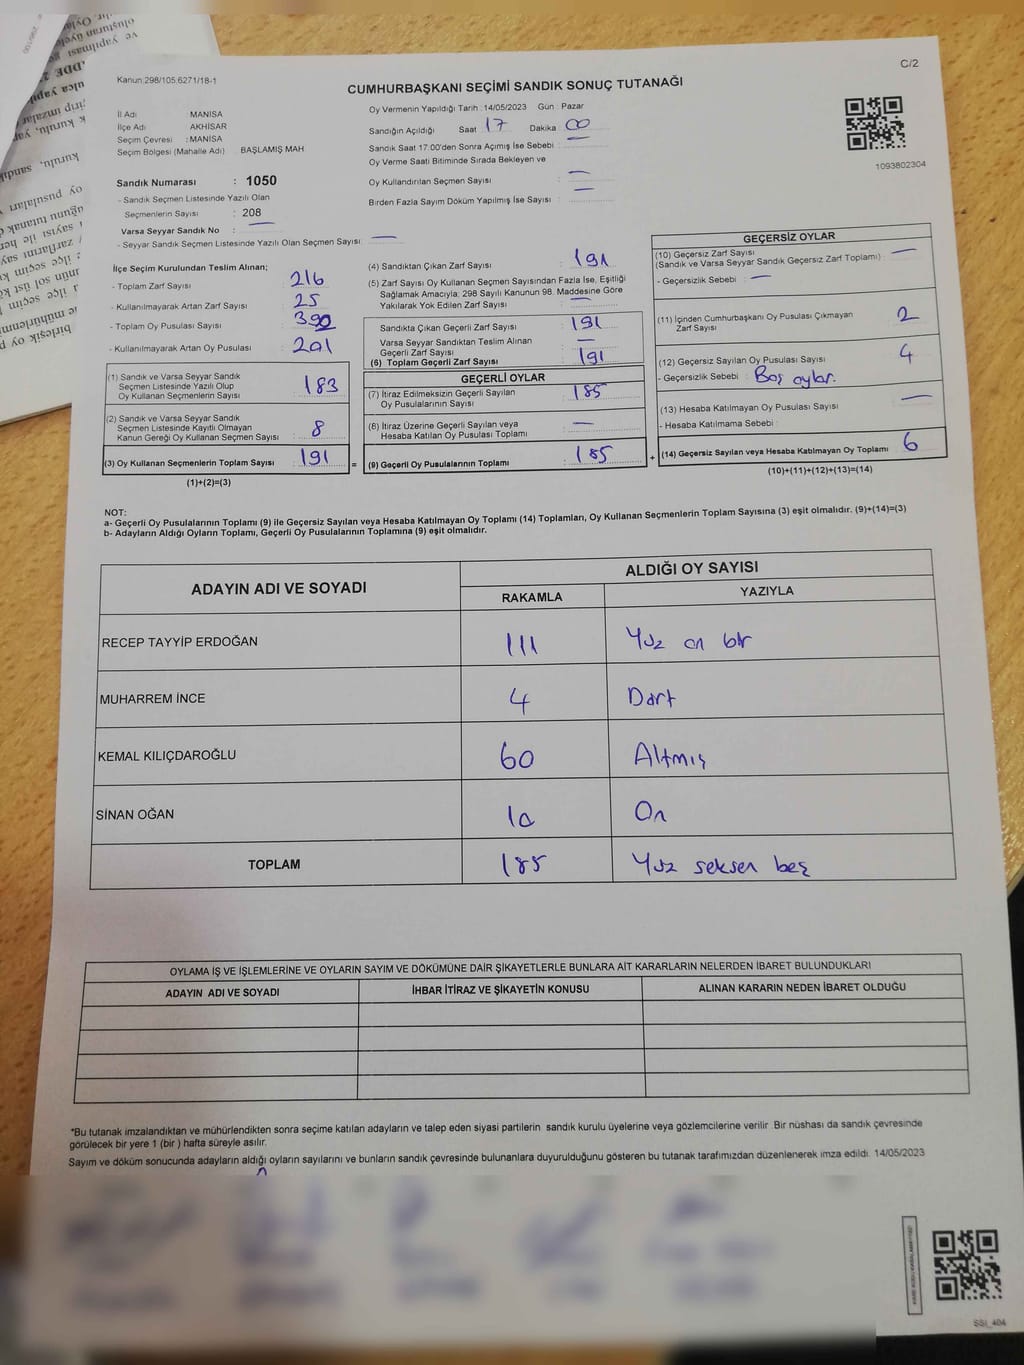 C/2
Kanun:298/105.6271/18-1
CUMHURBAŞKANI SEÇİMİ SANDIK SONUÇ TUTANAĞI
İl Adı MANİSA
İlçe Adı AKHİSAR
Seçim Çevresi : MANİSA
Seçim Bölgesi (Mahalle Adı) BAŞLAMIŞ MAH
Oy Vermenin Yapıldığı Tarih : 14/05/2023 Gün : Pazar
Sandığın Açıldığı Saat 17 Dakika 00
Sandık Saat 17:00'den Sonra Açımış İse Sebebi :
Oy Verme Saati Bitiminde Sırada Bekleyen ve
Oy Kullandırılan Seçmen Sayısı : —
Birden Fazla Sayım Döküm Yapılmış İse Sayısı : —
1093802304
Sandık Numarası : 1050
- Sandık Seçmen Listesinde Yazılı Olan
Seçmenlerin Sayısı : 208
Varsa Seyyar Sandık No : —
- Seyyar Sandık Seçmen Listesinde Yazılı Olan Seçmen Sayısı : —
İlçe Seçim Kurulundan Teslim Alınan;
- Toplam Zarf Sayısı : 216
- Kullanılmayarak Artan Zarf Sayısı : 25
- Toplam Oy Pusulası Sayısı : 390
- Kullanılmayarak Artan Oy Pusulası : 201
(1) Sandık ve Varsa Seyyar Sandık
Seçmen Listesinde Yazılı Olup
Oy Kullanan Seçmenlerin Sayısı : 183
(2) Sandık ve Varsa Seyyar Sandık
Seçmen Listesinde Kayıtlı Olmayan
Kanun Gereği Oy Kullanan Seçmen Sayısı : 8
(3) Oy Kullanan Seçmenlerin Toplam Sayısı : 191
(1)+(2)=(3)
(4) Sandıktan Çıkan Zarf Sayısı : 191
(5) Zarf Sayısı Oy Kullanan Seçmen Sayısından Fazla İse, Eşitliği
Sağlamak Amacıyla; 298 Sayılı Kanunun 98. Maddesine Göre
Yakılarak Yok Edilen Zarf Sayısı : —
Sandıkta Çıkan Geçerli Zarf Sayısı : 191
Varsa Seyyar Sandıktan Teslim Alınan
Geçerli Zarf Sayısı : —
(6) Toplam Geçerli Zarf Sayısı : 191
GEÇERLİ OYLAR
(7) İtiraz Edilmeksizin Geçerli Sayılan
Oy Pusulalarının Sayısı : 185
(8) İtiraz Üzerine Geçerli Sayılan veya
Hesaba Katılan Oy Pusulası Toplamı : —
= (9) Geçerli Oy Pusulalarının Toplamı : 185
GEÇERSİZ OYLAR
(10) Geçersiz Zarf Sayısı
(Sandık ve Varsa Seyyar Sandık Geçersiz Zarf Toplamı) : —
- Geçersizlik Sebebi : —
(11) İçinden Cumhurbaşkanı Oy Pusulası Çıkmayan
Zarf Sayısı : 2
(12) Geçersiz Sayılan Oy Pusulası Sayısı : 4
- Geçersizlik Sebebi : Boş oylar.
(13) Hesaba Katılmayan Oy Pusulası Sayısı : —
- Hesaba Katılmama Sebebi :
+ (14) Geçersiz Sayılan veya Hesaba Katılmayan Oy Toplamı : 6
(10)+(11)+(12)+(13)=(14)
NOT:
a- Geçerli Oy Pusulalarının Toplamı (9) ile Geçersiz Sayılan veya Hesaba Katılmayan Oy Toplamı (14) Toplamları, Oy Kullanan Seçmenlerin Toplam Sayısına (3) eşit olmalıdır. (9)+(14)=(3)
b- Adayların Aldığı Oyların Toplamı, Geçerli Oy Pusulalarının Toplamına (9) eşit olmalıdır.
ADAYIN ADI VE SOYADI ALDIĞI OY SAYISI
RAKAMLA YAZIYLA
RECEP TAYYİP ERDOĞAN 111 Yüz on bir
MUHARREM İNCE 4 Dört
KEMAL KILIÇDAROĞLU 60 Altmış
SİNAN OĞAN 10 On
TOPLAM 185 Yüz seksen beş
OYLAMA İŞ VE İŞLEMLERİNE VE OYLARIN SAYIM VE DÖKÜMÜNE DAİR ŞİKAYETLERLE BUNLARA AİT KARARLARIN NELERDEN İBARET BULUNDUKLARI
ADAYIN ADI VE SOYADI İHBAR İTİRAZ VE ŞİKAYETİN KONUSU ALINAN KARARIN NEDEN İBARET OLDUĞU
*Bu tutanak imzalandıktan ve mühürlendikten sonra seçime katılan adayların ve talep eden siyasi partilerin sandık kurulu üyelerine veya gözlemcilerine verilir .Bir nüshası da sandık çevresinde
görülecek bir yere 1 (bir ) hafta süreyle asılır.
Sayım ve döküm sonucunda adayların aldığı oyların sayılarını ve bunların sandık çevresinde bulunanlara duyurulduğunu gösteren bu tutanak tarafımızdan düzenlenerek imza edildi. 14/05/2023
SSI_404